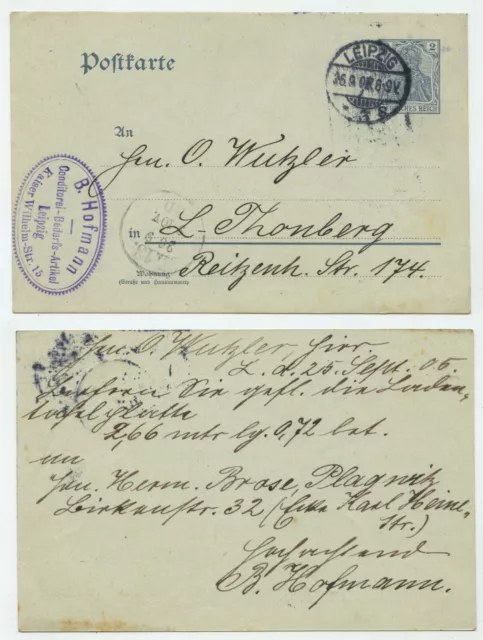 Postkarte
LEIPZIG
26.9.05. 8-9V.
* 3 s
2
An
Hrn. O. Wutzler
in L-Thonberg
Reitzenh. Str. 174.
Wohnung
(Straße und Hausnummer)
B. Hofmann
Conditorei-Bedarfs-Artikel
Leipzig
Kaiser Wilhelm-Str. 15
Hrn. O. Wutzler, hier
L. d. 25. Sept. 05.
Liefern Sie gefl. die Laden-
tafelplatte
2,66 mtr lg. 0,72 brt.
an
Hrn. Herm. Brose, Plagwitz
Birkenstr. 32 (Ecke Karl Heine-
Str.)
Hochachtend
B. Hofmann.